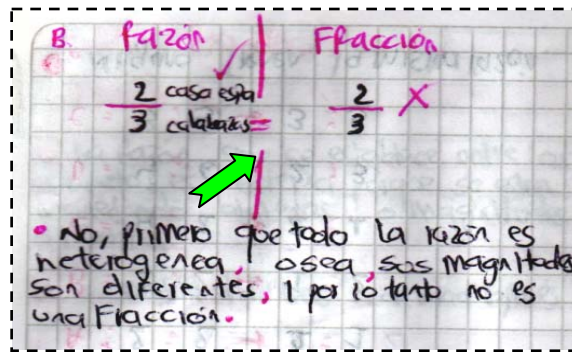 B. Razón Fracción
2 casa espa 2
3 calabazas = 3
• No, primero que todo la razón es
heterogenea, osea, sus magnitudes
son diferentes, i por lo tanto no es
una Fracción.